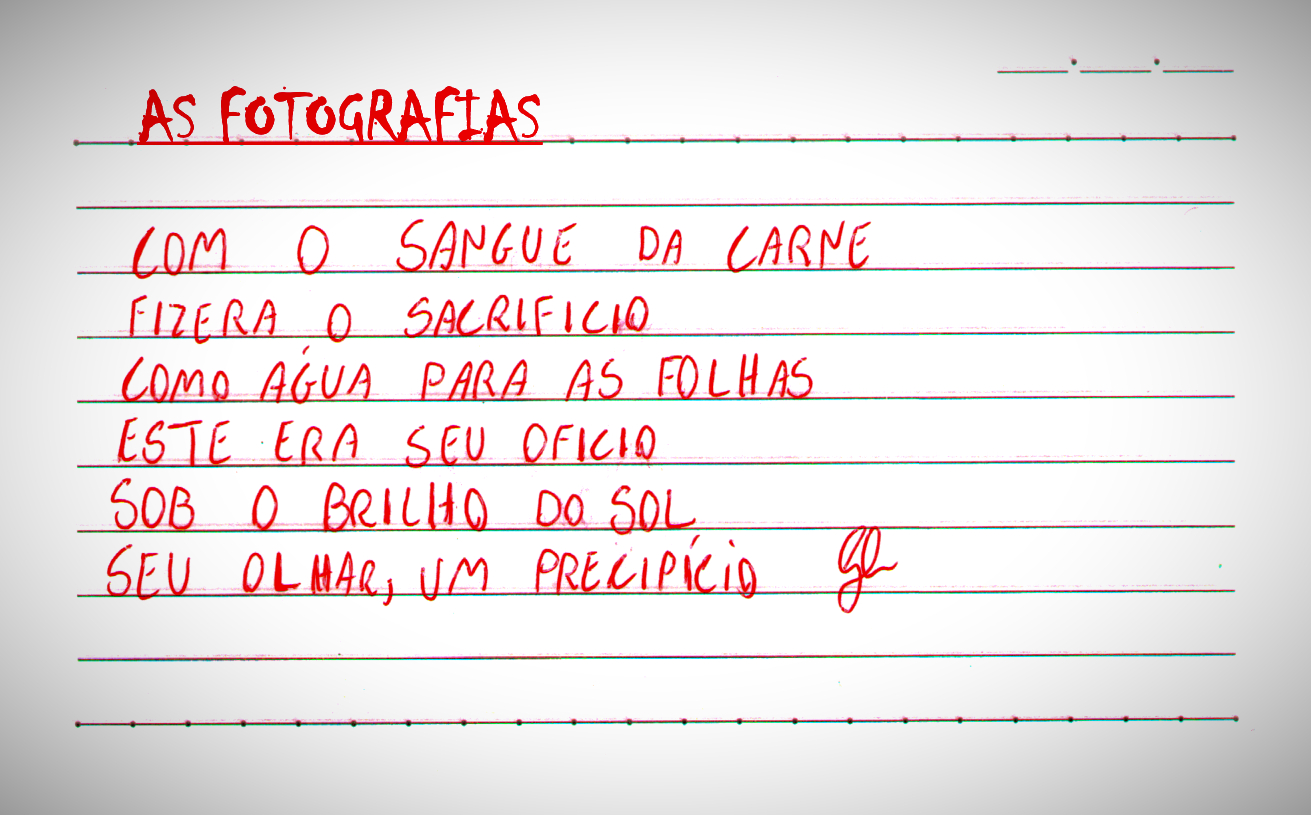 AS FOTOGRAFIAS
COM O SANGUE DA CARNE
FIZERA O SACRIFICIO
COMO ÁGUA PARA AS FOLHAS
ESTE ERA SEU OFICIO
SOB O BRILHO DO SOL
SEU OLHAR, UM PRECIPÍCIO